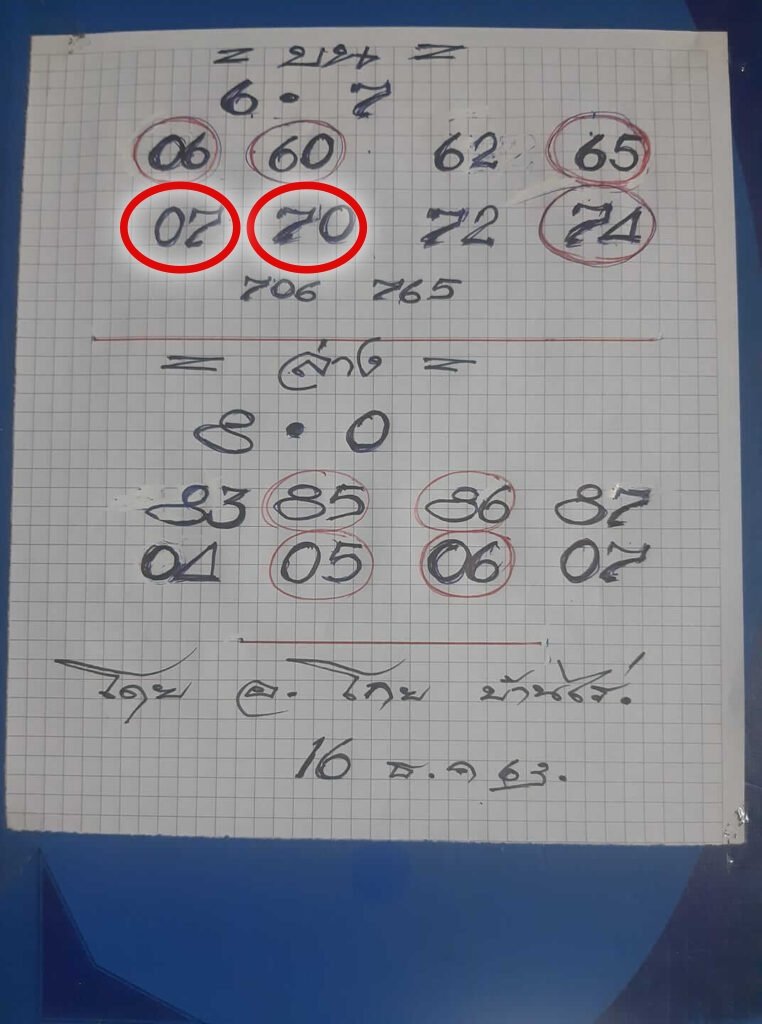 = บน =
6 · 7
06 60 62 65
07 70 72 74
706 765
= ล่าง =
8 · 0
83 85 86 87
04 05 06 07
โดย อ. โทย บ้านไร่.
16 ธ.ค 63.